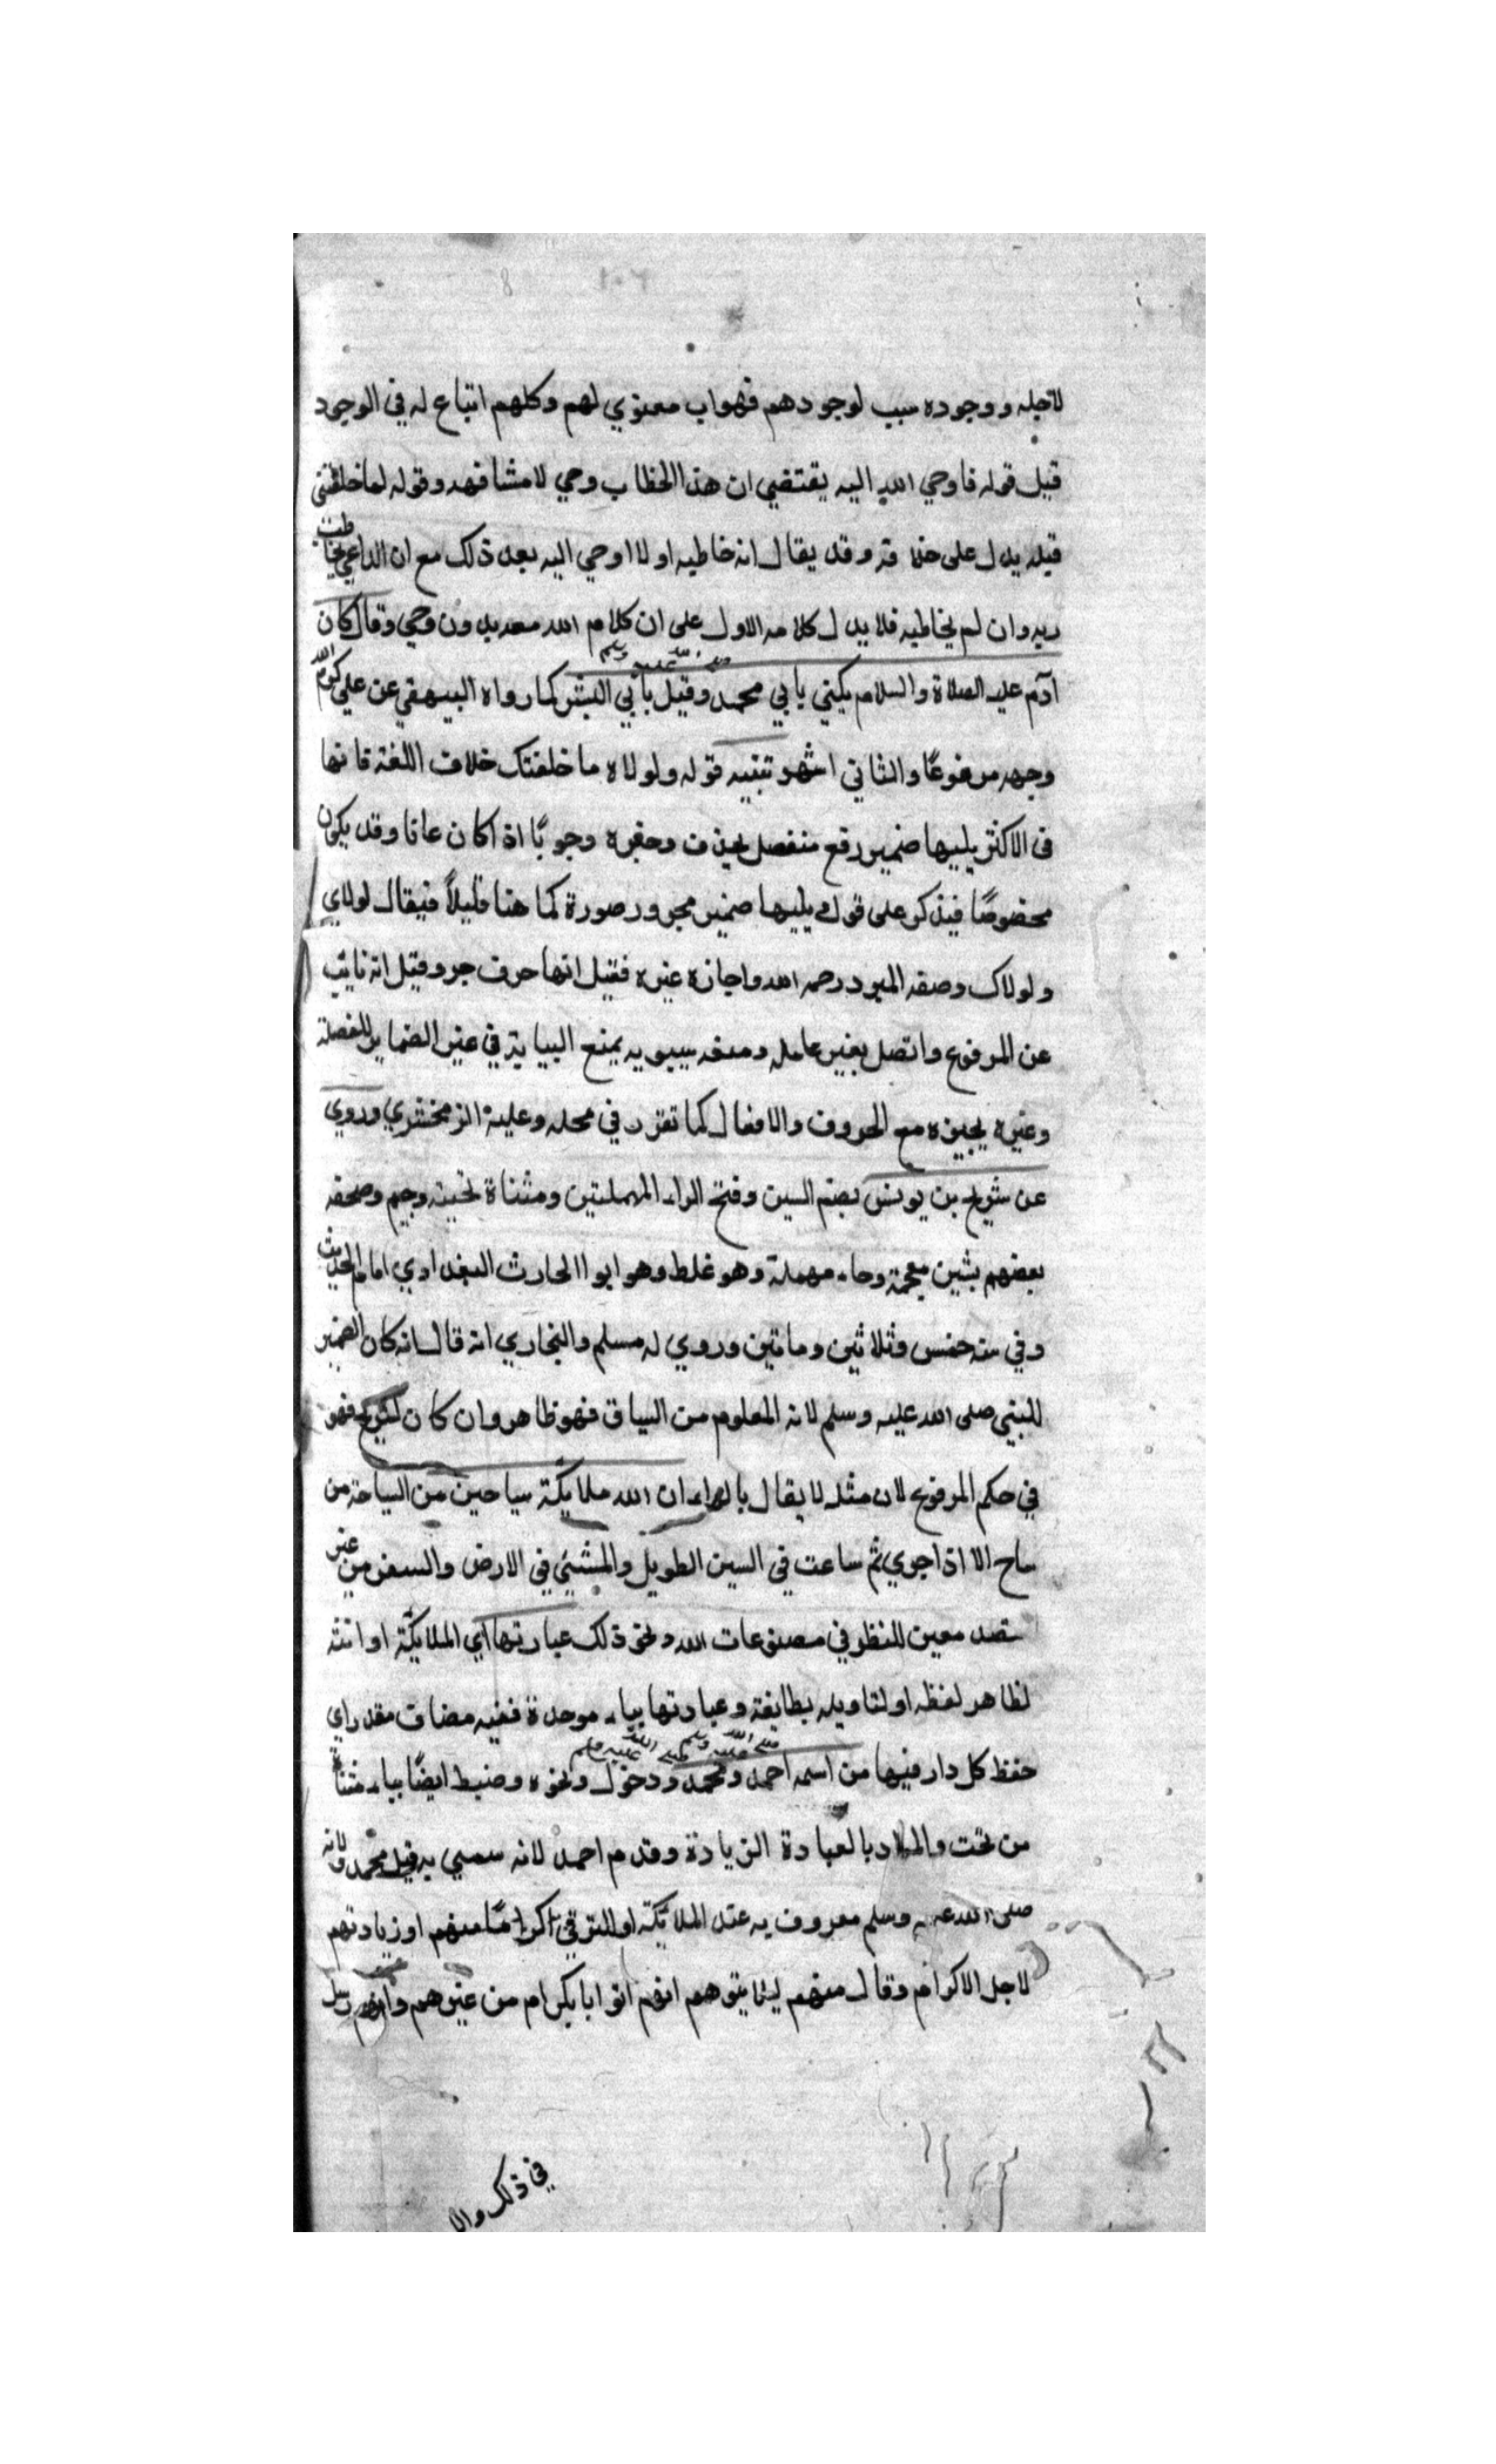 لاجله ووجوده سبب لوجودهم فهواب معنوي لهم وكلهم اتباع له في الوجود
قيل قوله فاوحي الله اليه يقتضي ان هذا الخطاب وحي لا مشافهه وقوله لما خلقتني
قيله يدل على خلا فه وقد يقال انه خاطبه اولا اوحي اليه بعد ذلك مع ان الداعي يخاطب
ربه وان لم يخاطبه فلا يدل كلامه الاول على ان كلام الله معه بدون وحي وقال كان
آدم عليه الصلاة والسلام يكني بابي محمد صلى الله عليه وسلم وقيل بابي البشر كما رواه البيهقي عن علي كرم الله
وجهه مرفوعًا والثاني اشهر تنبيه قوله ولولاه ما خلقتك خلاف اللغة فانها
في الاكثر يليها ضمير رفع منفصل يحذف وخبره وجوبًا اذا كان عاما وقد يكون
مخصوصًا فيذكر على قول يليها ضمير مجرور صورة كما هنا قليلاً فيقال لولاي
ولولاك وصفه المبرد رحمه الله واجازه غيره فقيل انها حرف جر وقيل انه نايب
عن المرفوع واتصل بغير عامله ومنعه سيبويه يمنع النيابة في غير الضماير المنفصلة
وغيره يجيزه مع الحروف والافعال كما تقرر في محله وعليه الزمخشري وروي
عن شريح بن يونس بضم السين وفتح الراء المهملتين ومثناة تحتيه وجيم وصحفه
بعضهم بشين معجمة وحاء مهملة وهو غلط وهو ابوا الحارث البغدادي امام الحديث
وفي سنه خمس وثلاثين وماتين وروي له مسلم والبخاري انه قال انه كان الضمير
للنبي صلى الله عليه وسلم لانه المعلوم من السياق فهو ظاهر وان كان لشريح فهو
في حكم المرفوع لان مثله لا يقال بالراء ان الله ملايكة سياحين من السياحة من
ساح الا اذا جري ثم ساعت في السير الطويل والمشيي في الارض والسفر من غير
قصد معين للنظر في مصنوعات الله ونحو ذلك عبارتها اي الملايكة او انته
لظاهر لفظه او لتاويله بطايفة وعبادتها بباء موحدة ففيه مضاف مقدر اي
حفظ كل دار فيها من اسمه احمد صلى الله عليه وسلم ومحمد صلى الله عليه وسلم ودخول ونحوه وضبط ايضًا بياء مثناة
من تحت والمراد بالعبادة الزيادة وقدم احمد لانه سمي به قبل محمد ولانه
صلى الله عليه وسلم معروف به عند الملائكة او للترقي اكرامًا منهم او زيادتهم
لاجل الاكرام وقال منهم ليلا يتوهم انهم اتوا باكرام من غيرهم وانهم رسل
في ذلك والا